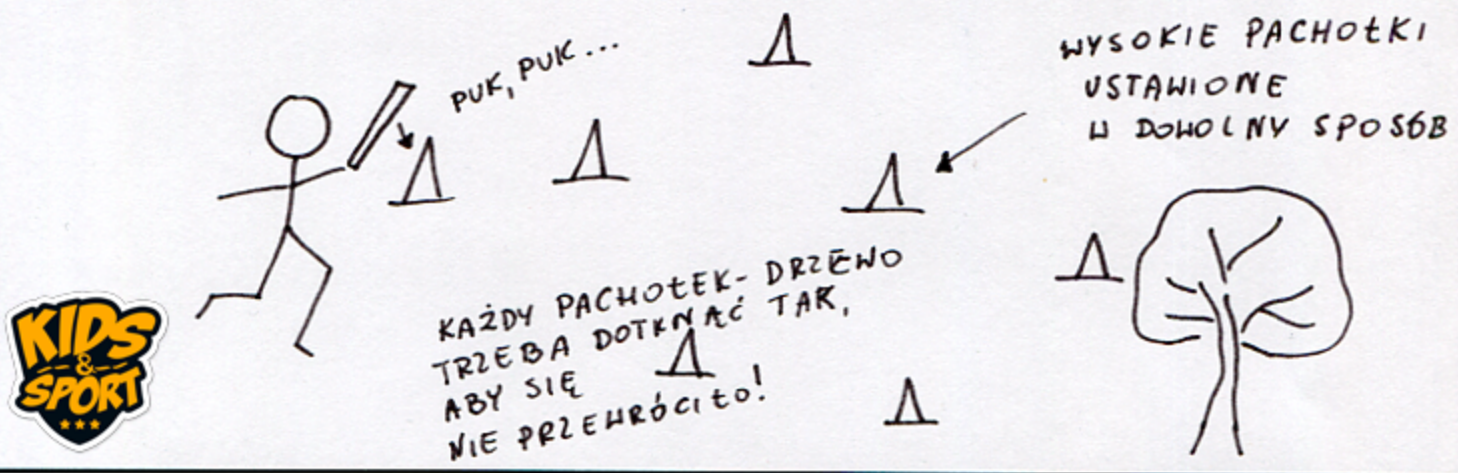 PUK, PUK...
WYSOKIE PACHOŁKI
USTAWIONE
W DOWOLNY SPOSÓB
KAŻDY PACHOŁEK-DRZEWO
TRZEBA DOTKNĄĆ TAK,
ABY SIĘ
NIE PRZEWRÓCIŁO!
KIDS
&
SPORT